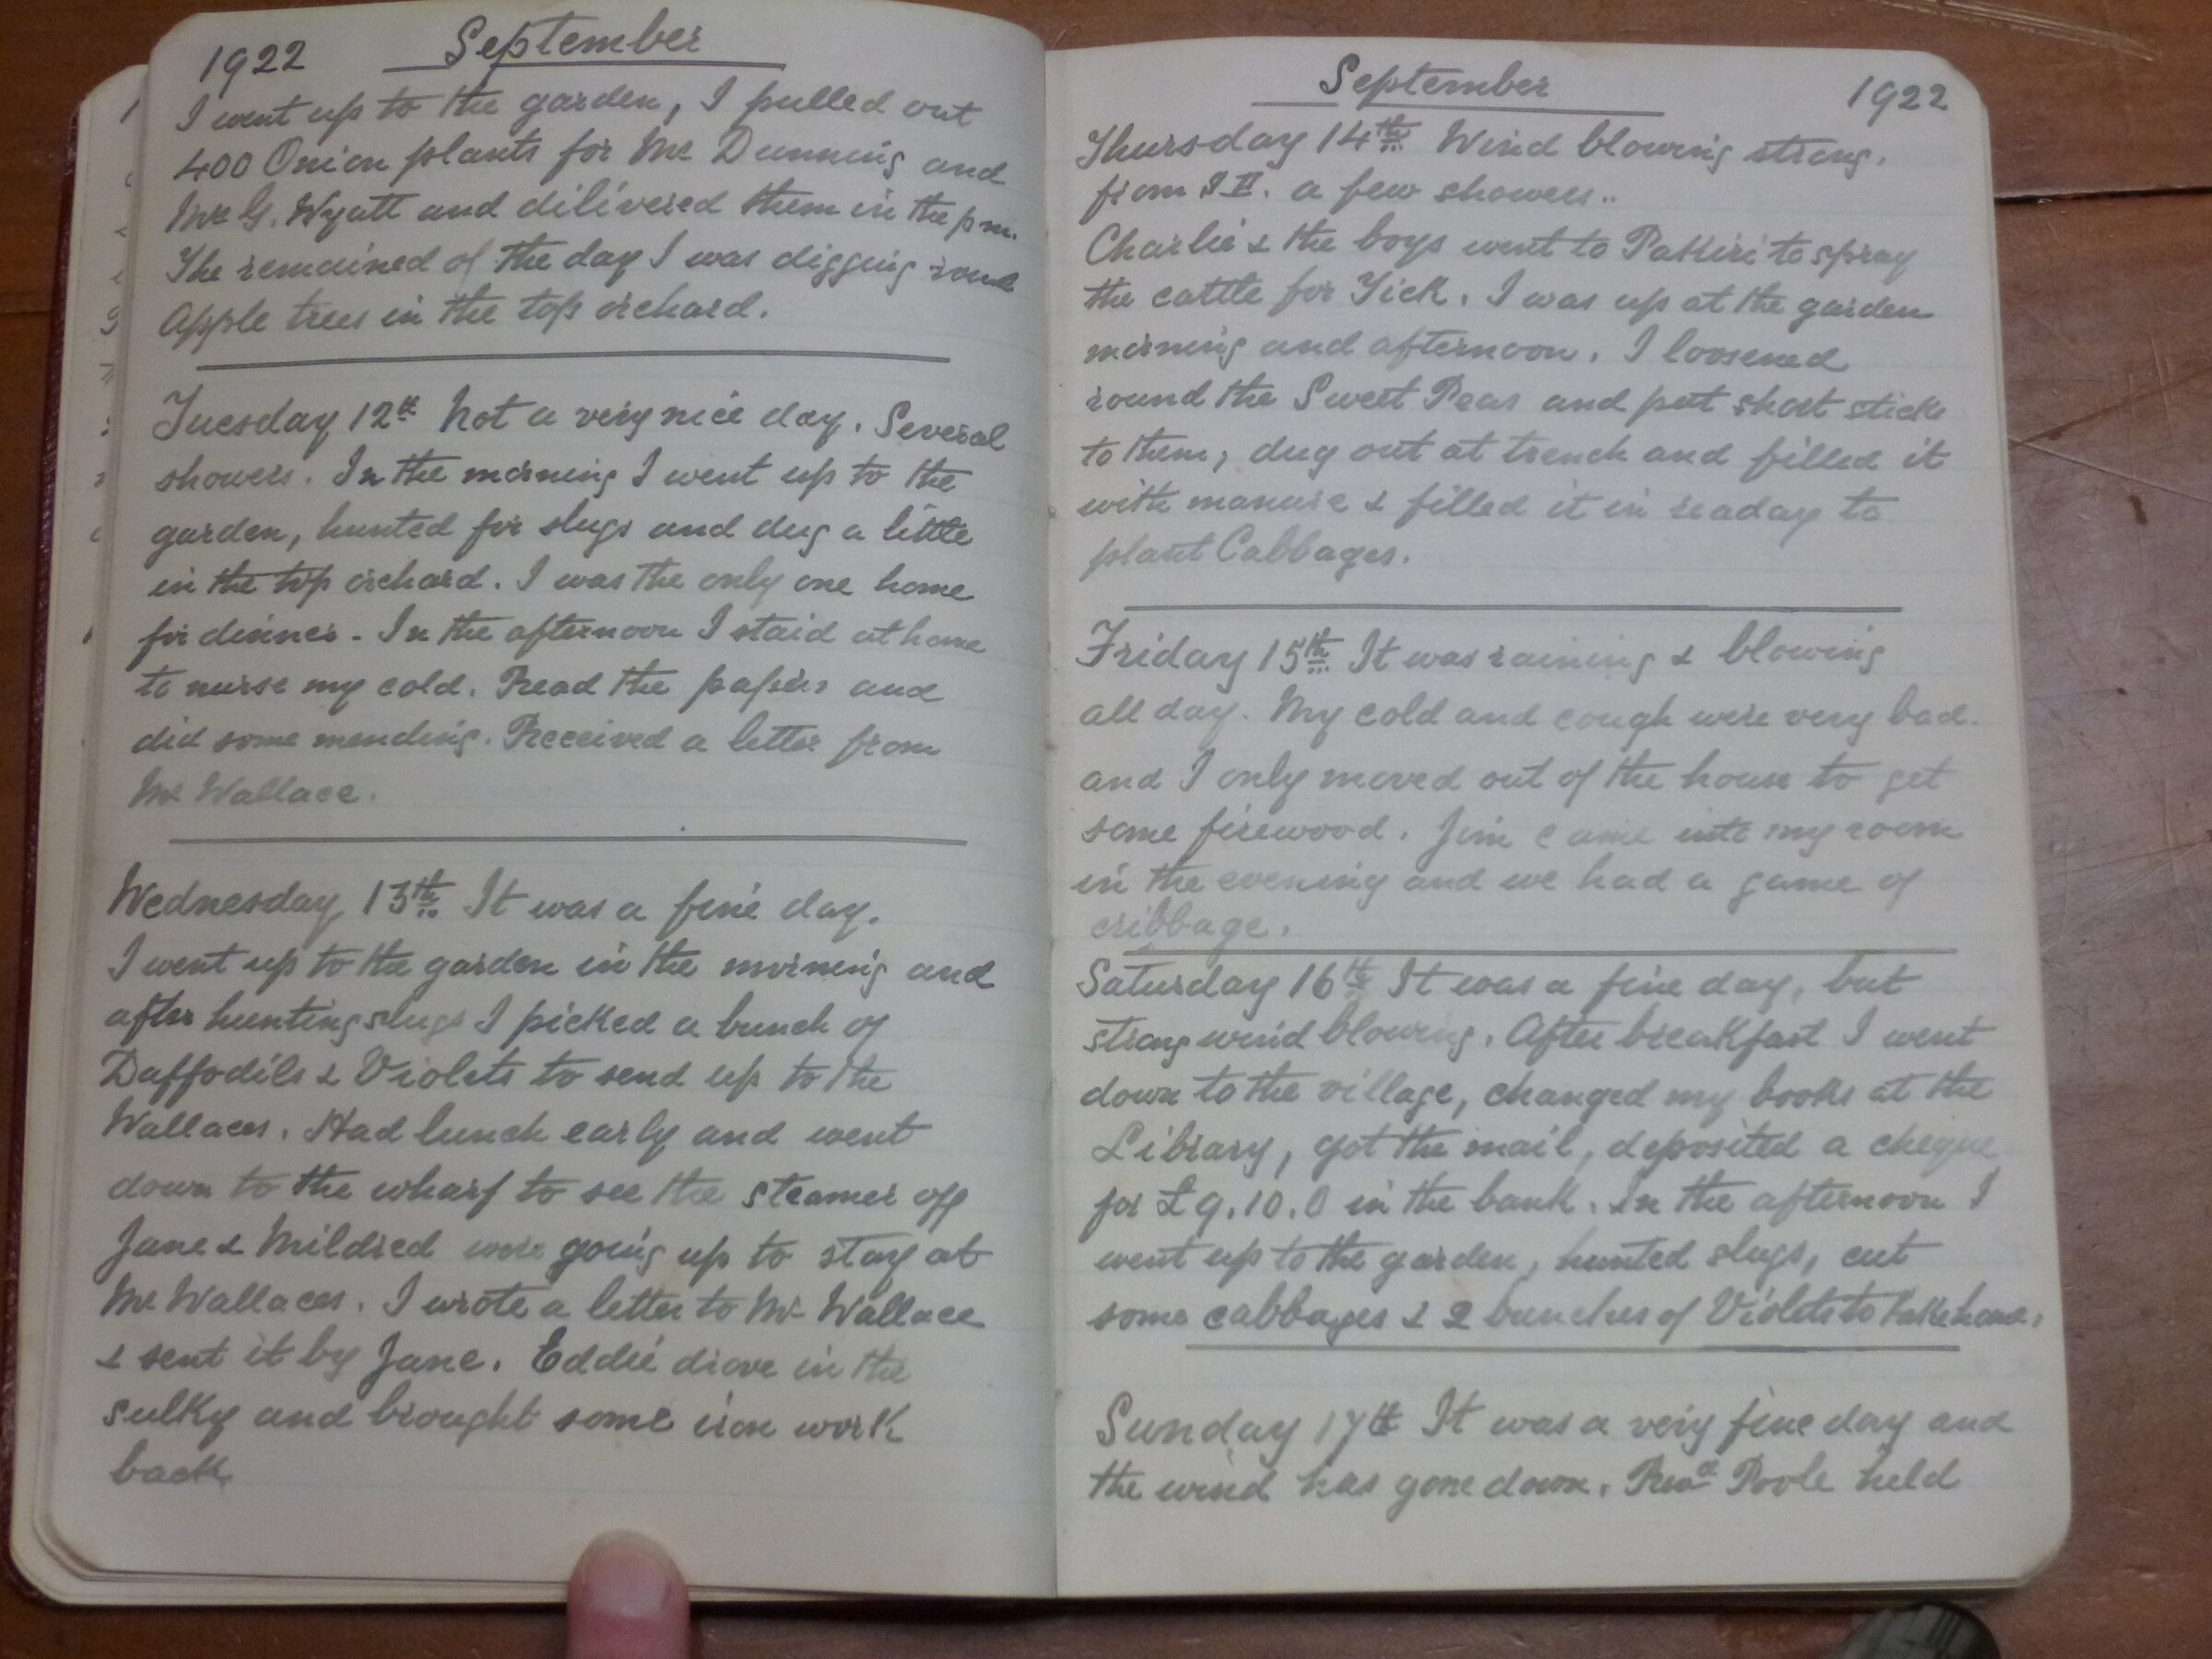 1922 September
I went up to the garden, I pulled out
400 Onion plants for Mr Dunning and
Mr G. Wyatt and dilivered them in the pm.
The remained of the day I was digging round
Apple trees in the top orchard.
Tuesday 12th Not a very nice day. Several
showers. In the morning I went up to the
garden, hunted for slugs and dug a little
in the top orchard. I was the only one home
for dinner - In the afternoon I staid at home
to nurse my cold. Read the papers and
did some mending. Received a letter from
Mr Wallace.
Wednesday 13th It was a fine day.
I went up to the garden in the morning and
after hunting slugs I picked a bunch of
Daffodils & Violets to send up to the
Wallaces. Had lunch early and went
down to the wharf to see the steamer off
Jane & Mildred were going up to stay at
Mr Wallaces. I wrote a letter to Mr Wallace
& sent it by Jane. Eddie drove in the
sulky and brought some iron work
back
September 1922
Thursday 14th Wind blowing strong.
from a few showers..
Charlie & the boys went to Pakiri to spray
the cattle for Tick. I was up at the garden
morning and afternoon. I loosened
round the Sweet Peas and put short sticks
to them, dug out at trench and filled it
with manure & filled it in readay to
plant Cabbages.
Friday 15th It was raining & blowing
all day. My cold and cough were very bad.
and I only moved out of the house to get
some firewood. Jim came into my room
in the evening and we had a game of
cribbage.
Saturday 16th It was a fine day, but
strong wind blowing. After breakfast I went
down to the village, changed my books at the
Library, got the mail, deposited a cheque
for £9.10.0 in the bank. In the afternoon I
went up to the garden, hunted slugs, cut
some cabbages & 2 bunches of Violets to take home.
Sunday 17th It was a very fine day and
the wind has gone down. Revd Poole held